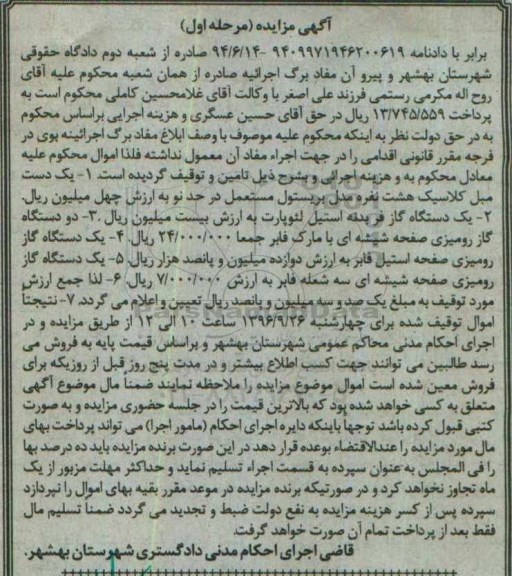 آگهی مزایده (مرحله اول)
برابر با دادنامه ۹۴۰۹۹۷۱۹۴۶۲۰۰۶۱۹ -۹۴/۶/۱۴ صادره از شعبه دوم دادگاه حقوقی
شهرستان بهشهر و پیرو آن مفاد برگ اجرائیه صادره از همان شعبه محکوم علیه آقای
روح اله مکرمی رستمی فرزند علی اصغر با وکالت آقای غلامحسین کاملی محکوم است به
پرداخت ۱۳/۷۴۵/۵۵۹ ریال در حق آقای حسین عسگری و هزینه اجرایی براساس محکوم
به در حق دولت نظر به اینکه محکوم علیه موصوف با وصف ابلاغ مفاد برگ اجرائیه بوی در
فرجه مقرر قانونی اقدامی را در جهت اجراء مفاد آن معمول نداشته فلذا اموال محکوم علیه
معادل محکوم به و هزینه اجرائی و بشرح ذیل تامین و توقیف گردیده است. ۱- یک دست
مبل کلاسیک هشت نفره مدل بریستول مستعمل در حد نو به ارزش چهل میلیون ریال.
۲- یک دستگاه گاز فر بدنه استیل لئوپارت به ارزش بیست میلیون ریال .۳- دو دستگاه
گاز رومیزی صفحه شیشه ای با مارک فابر جمعا ۲۴/۰۰۰/۰۰۰ ریال. ۴- یک دستگاه گاز
رومیزی صفحه استیل فابر به ارزش دوازده میلیون و پانصد هزار ریال. ۵- یک دستگاه گاز
رومیزی صفحه شیشه ای سه شعله فابر به ارزش ۷/۰۰۰/۰۰۰ ریال. ۶- لذا جمع ارزش
مورد توقیف به مبلغ یک صد و سه میلیون و پانصد ریال تعیین و اعلام می گردد. ۷- نتیجتا
اموال توقیف شده برای چهارشنبه ۱۳۹۶/۹/۲۶ ساعت ۱۰ الی ۱۲ از طریق مزایده و در
اجرای احکام مدنی محاکم عمومی شهرستان بهشهر و براساس قیمت پایه به فروش می
رسد طالبین می توانند جهت کسب اطلاع بیشتر و در مدت پنج روز قبل از روزیکه برای
فروش معین شده است اموال موضوع مزایده را ملاحظه نمایند ضمنا مال موضوع آگهی
متعلق به کسی خواهد شده بود که بالاترین قیمت را در جلسه حضوری مزایده و به صورت
کتبی قبول کرده باشد توجها باینکه دایره اجرای احکام (مامور اجرا) می تواند پرداخت بهای
مال مورد مزایده را عندالاقتضاء بوعده قرار دهد در این صورت برنده مزایده باید ده درصد بها
را فی المجلس به عنوان سپرده به قسمت اجراء تسلیم نماید و حداکثر مهلت مزبور از یک
ماه تجاوز نخواهد کرد و در صورتیکه برنده مزایده در موعد مقرر بقیه بهای اموال را نپردازد
سپرده پس از کسر هزینه مزایده به نفع دولت ضبط و تجدید می گردد ضمنا تسلیم مال
فقط بعد از پرداخت تمام آن صورت خواهد گرفت.
قاضی اجرای احکام مدنی دادگستری شهرستان بهشهر.